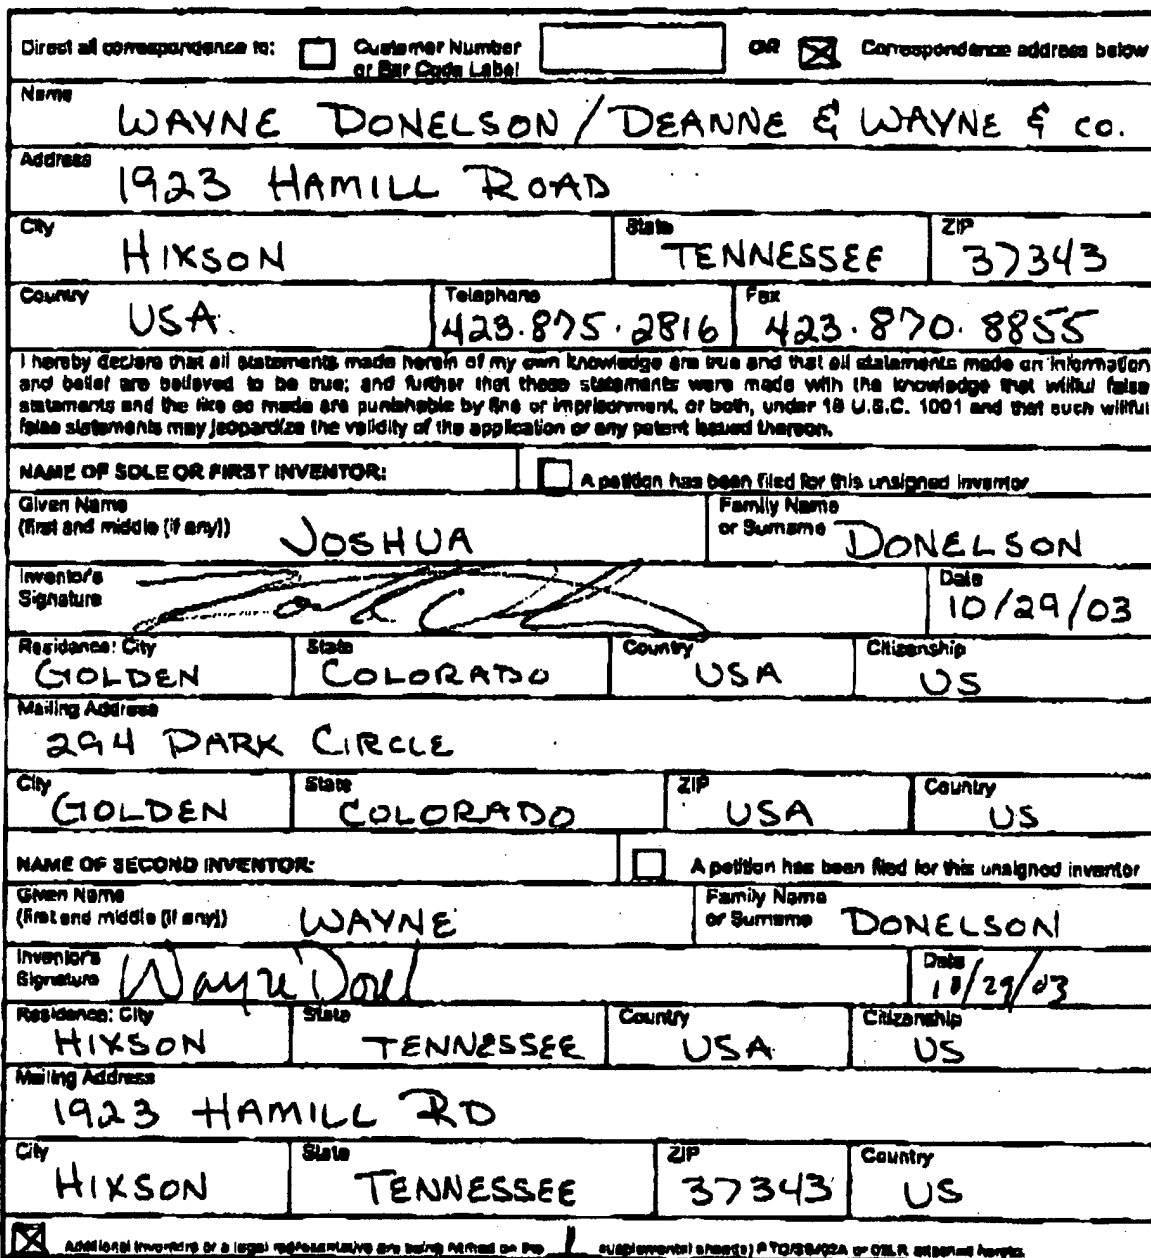 Direct all correspondence to: Customer Number or Bar Code Label OR Correspondence address below
Name
WAYNE DONELSON / DEANNE & WAYNE & CO.
Address
1923 HAMILL ROAD
City State ZIP
HIXSON TENNESSEE 37343
Country Telephone Fax
USA. 423.875.2816 423.870.8855
I hereby declare that all statements made herein of my own knowledge are true and that all statements made on information
and belief are believed to be true; and further that these statements were made with the knowledge that willful false
statements and the like so made are punishable by fine or imprisonment, or both, under 18 U.S.C. 1001 and that such willful
false statements may jeopardize the validity of the application or any patent issued thereon.
NAME OF SOLE OR FIRST INVENTOR: A petition has been filed for this unsigned inventor
Given Name (first and middle (if any)) JOSHUA Family Name or Surname DONELSON
Inventor's Signature Date 10/29/03
Residence: City State Country Citizenship
GOLDEN COLORADO USA US
Mailing Address
294 PARK CIRCLE
City State ZIP Country
GOLDEN COLORADO USA US
NAME OF SECOND INVENTOR: A petition has been filed for this unsigned inventor
Given Name (first and middle (if any)) WAYNE Family Name or Surname DONELSON
Inventor's Signature Wayne Donel Date 10/29/03
Residence: City State Country Citizenship
HIXSON TENNESSEE USA US
Mailing Address
1923 HAMILL RD
City State ZIP Country
HIXSON TENNESSEE 37343 US
Additional inventors or a legal representative are being named on the 1 supplemental sheet(s) PTO/SB/02A or 02LR attached hereto.